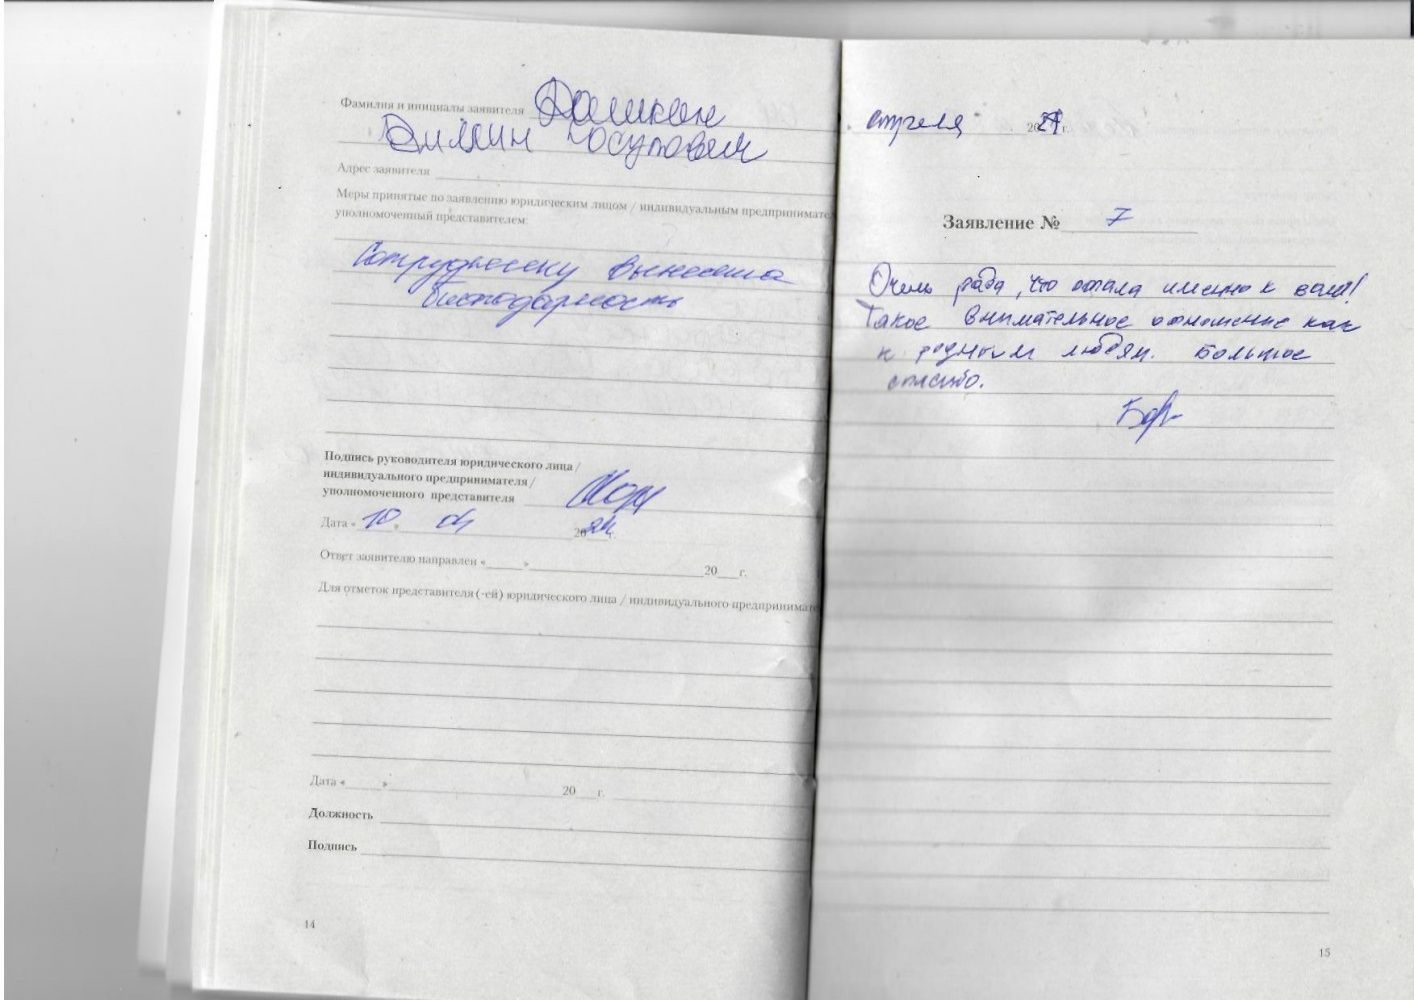 Фамилия и инициалы заявителя Дашкин
Юсупович
Адрес заявителя
Меры принятые по заявлению юридическим лицом / индивидуальным предпринимател
уполномоченный представителем
Сотруднику вынесена
благодарность
Подпись руководителя юридического лица /
индивидуального предпринимателя /
уполномоченного представителя
Дата « 10 » 04 2024 г.
Ответ заявителю направлен « » 20 г.
Для отметок представителя (-ей) юридического лица / индивидуального предпринимате
Дата « » 20 г.
Должность
Подпись
14
апреля 2024 г.
Заявление № 7
Очень рада, что попала именно к вам!
Такое внимательное отношение как
к родным людям. Большое
спасибо.
15